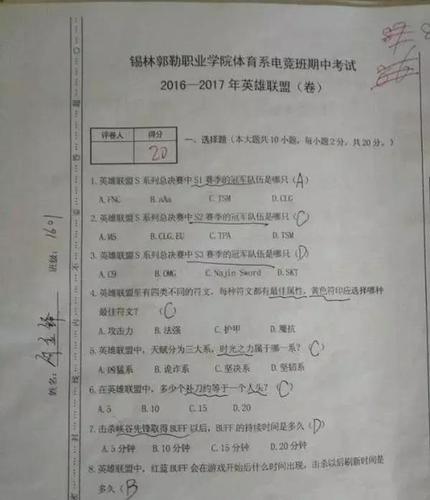 锡林郭勒职业学院体育系电竞班期中考试
2016—2017 年英雄联盟（卷）
评卷人 得分
20
一、选择题（本大题共10小题，每小题2分，共20分。）
1.英雄联盟S系列总决赛中S1赛季的冠军队伍是哪只(A)
A.FNC B.aAa C.TSM D.CLG
2.英雄联盟S系列总决赛中S2赛季的冠军队伍是哪只(C)
A.M5 B.CLG.EU C.TPA D.TSM
3.英雄联盟S系列总决赛中S3赛季的冠军队伍是哪只(D)
A.C9 B.OMG C.Najin Sword D.SKT
4.英雄联盟里有四类不同的符文，每种符文都有最佳属性，黄色符印应选择哪种
最佳符文？ (C)
A.攻击力 B.法强 C.护甲 D.魔抗
5.英雄联盟中，天赋分为三大系，时光之力属于哪一系？(C)
A.凶猛系 B.诡诈系 C.坚决系 D.坚韧系
6.在英雄联盟中，多少个补刀约等于一个人头？(C)
A.5 B.10 C.15 D.20
7.击杀峡谷先锋取得BUFF以后，BUFF的持续时间是多久(D)
A.5分钟 B.10分钟 C.15分钟 D.20分钟
8.英雄联盟中，红蓝BUFF会在游戏开始后什么时间出现，击杀以后刷新时间是
多久(B
班级：1601
姓名：